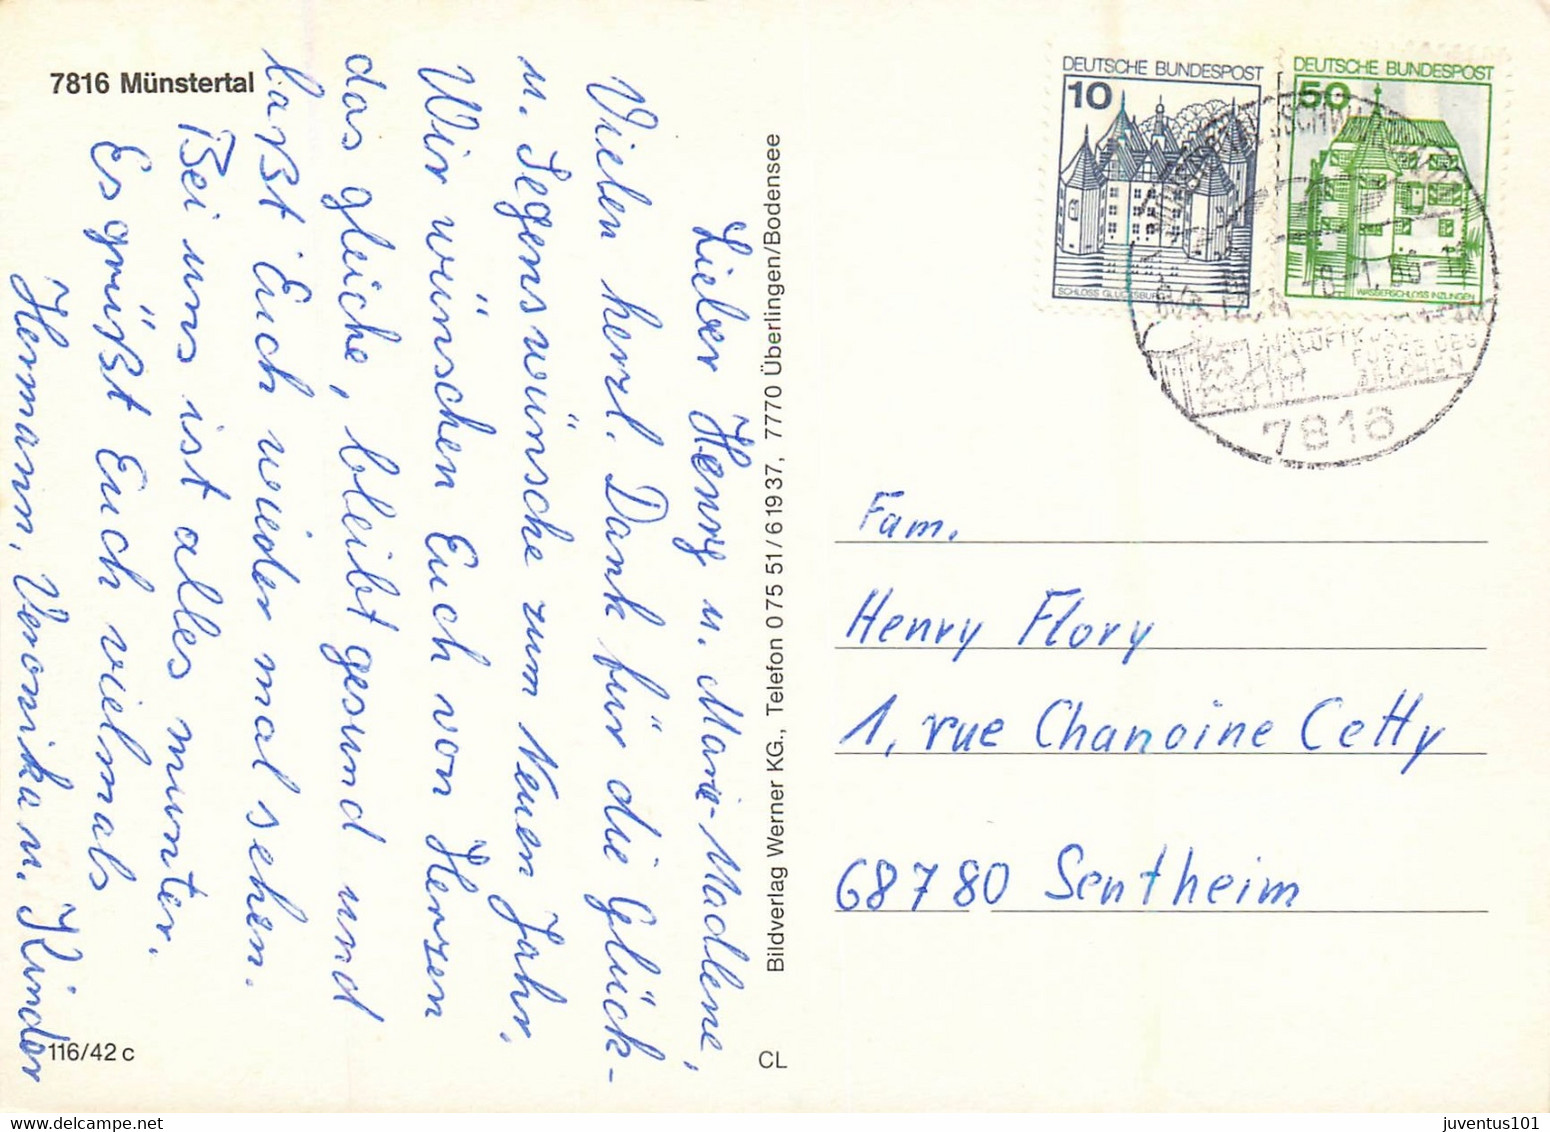 7816 Münstertal
Lieber Henry u. Marie-Madlene,
Vielen herzl. Dank für die Glück-
u. Segenswünsche zum Neuen Jahr.
Wir wünschen Euch von Herzen
das gleiche, bleibt gesund und
laßt Euch wieder mal sehen.
Bei uns ist alles munter.
Es grüßt Euch vielmals
Hermann, Veronika u. Kinder
116/42 c
Bildverlag Werner KG., Telefon 0 75 51/6 19 37, 7770 Überlingen/Bodensee
CL
DEUTSCHE BUNDESPOST
10
SCHLOSS GLÜCKSBURG
DEUTSCHE BUNDESPOST
50
WASSERSCHLOSS INZLINGEN
7816
Fam.
Henry Flory
1, rue Chanoine Cetty
68780 Sentheim
juventus101